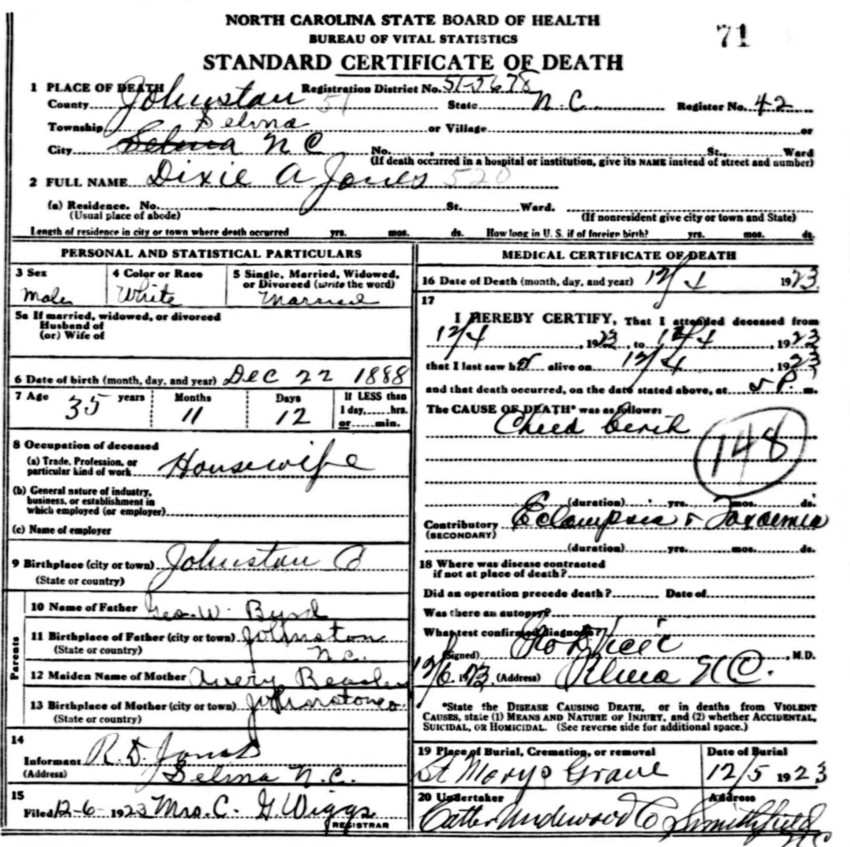 NORTH CAROLINA STATE BOARD OF HEALTH
BUREAU OF VITAL STATISTICS
71
STANDARD CERTIFICATE OF DEATH
1 PLACE OF DEATH Registration District No. 51-5678
County Johnston 51 State N.C. Register No. 42
Township Selma or Village or
City Selma N C No. , St., Ward
(If death occurred in a hospital or institution, give its NAME instead of street and number)
2 FULL NAME Dixie A Jones 520
(a) Residence. No. St. Ward.
(Usual place of abode) (If nonresident give city or town and State)
Length of residence in city or town where death occurred yrs. mos. ds. How long in U.S. if of foreign birth? yrs. mos. ds.
PERSONAL AND STATISTICAL PARTICULARS
3 Sex 4 Color or Race 5 Single, Married, Widowed, or Divorced (write the word)
Male White Married
5a If married, widowed, or divorced
Husband of
(or) Wife of
6 Date of birth (month, day, and year) Dec 22 1888
7 Age 35 years Months 11 Days 12 If LESS than 1 day, hrs. or min.
8 Occupation of deceased
(a) Trade, Profession, or particular kind of work Housewife
(b) General nature of industry, business, or establishment in which employed (or employer)
(c) Name of employer
9 Birthplace (city or town) Johnston C
(State or country)
Parents
10 Name of Father Geo. W. Byrd
11 Birthplace of Father (city or town) Johnston
(State or country) N.C.
12 Maiden Name of Mother Avery Beasley
13 Birthplace of Mother (city or town) Johnston Co.
(State or country)
14
Informant R. D. Jones
(Address) Selma N.C.
15
Filed 12-6-1923 Mrs. C. G. Wiggs
REGISTRAR
MEDICAL CERTIFICATE OF DEATH
16 Date of Death (month, day, and year) 12/4 1923
17
I HEREBY CERTIFY, That I attended deceased from
12/4, 1923, to 12/4, 1923
that I last saw h alive on 12/4, 1923
and that death occurred, on the date stated above, at 5 P. m.
The CAUSE OF DEATH* was as follows:
Child birth
148
(duration) yrs. mos. ds.
Contributory Eclampsia & Toxaemia
(SECONDARY)
(duration) yrs. mos. ds.
18 Where was disease contracted
if not at place of death?
Did an operation precede death? Date of
Was there an autopsy?
What test confirmed diagnosis?
(Signed) M.D.
12/6, 1923 (Address) Selma N.C.
*State the DISEASE CAUSING DEATH, or in deaths from VIOLENT
CAUSES, state (1) MEANS AND NATURE OF INJURY, and (2) whether ACCIDENTAL,
SUICIDAL, OR HOMICIDAL. (See reverse side for additional space.)
19 Place of Burial, Cremation, or removal Date of Burial
St Marys Grave 12/5 1923
20 Undertaker Address
Underwood Co Smithfield
N C